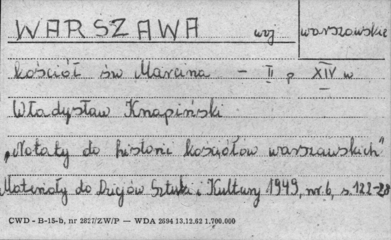 WARSZAWA woj warszawskie
kościół św Marcina – II p XIV w
Władysław Knapiński
„Notaty do historii kościołów warszawskich"
Materiały do Dziejów Sztuki i Kultury 1949, nr 6, s. 122-28
CWD - B-15-b, nr 2827/ZW/P — WDA 2694 13.12.62 1.700.000